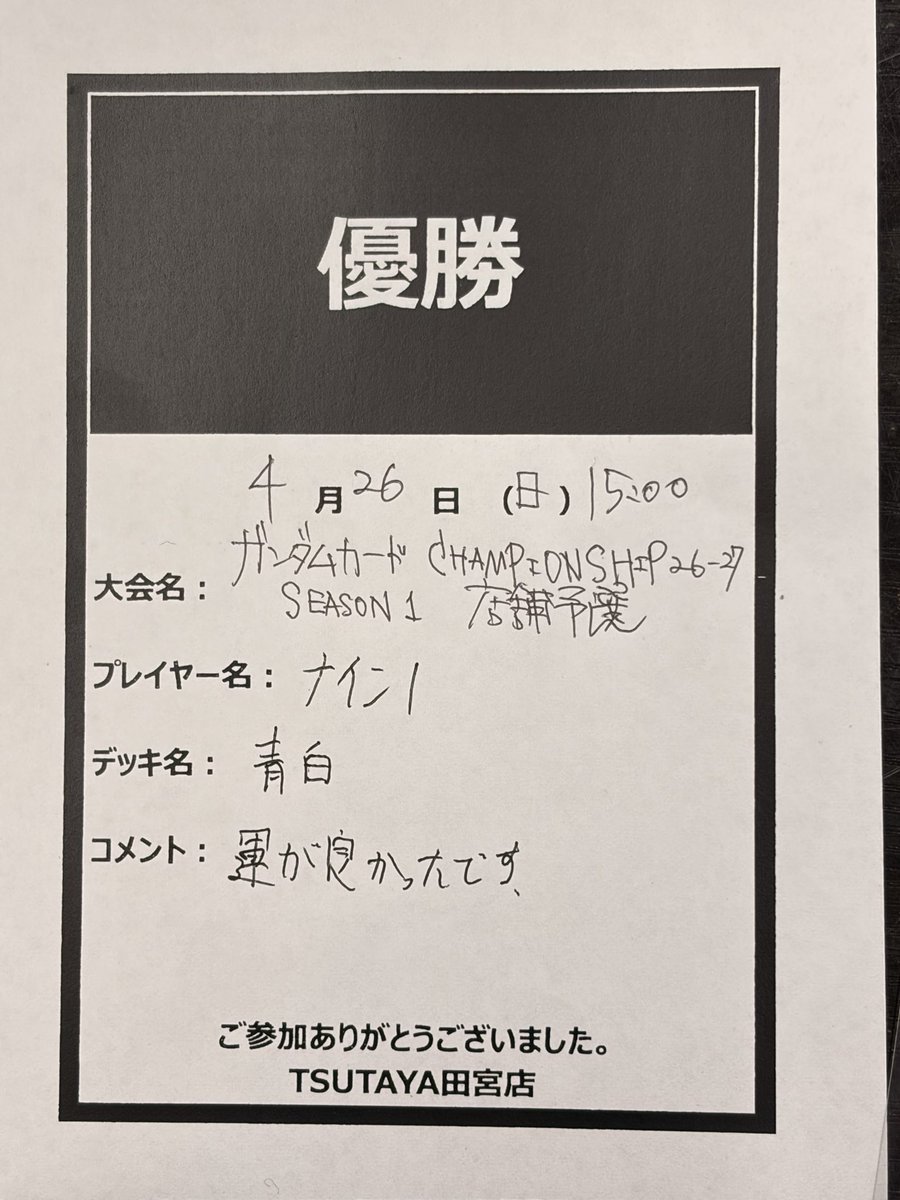 優勝
4月26日(日)15:00
大会名：ガンダムカード CHAMPIONSHIP26-27
SEASON1 店舗予選
プレイヤー名：ナイン1
デッキ名：青白
コメント：運が良かったです、
ご参加ありがとうございました。
TSUTAYA田宮店